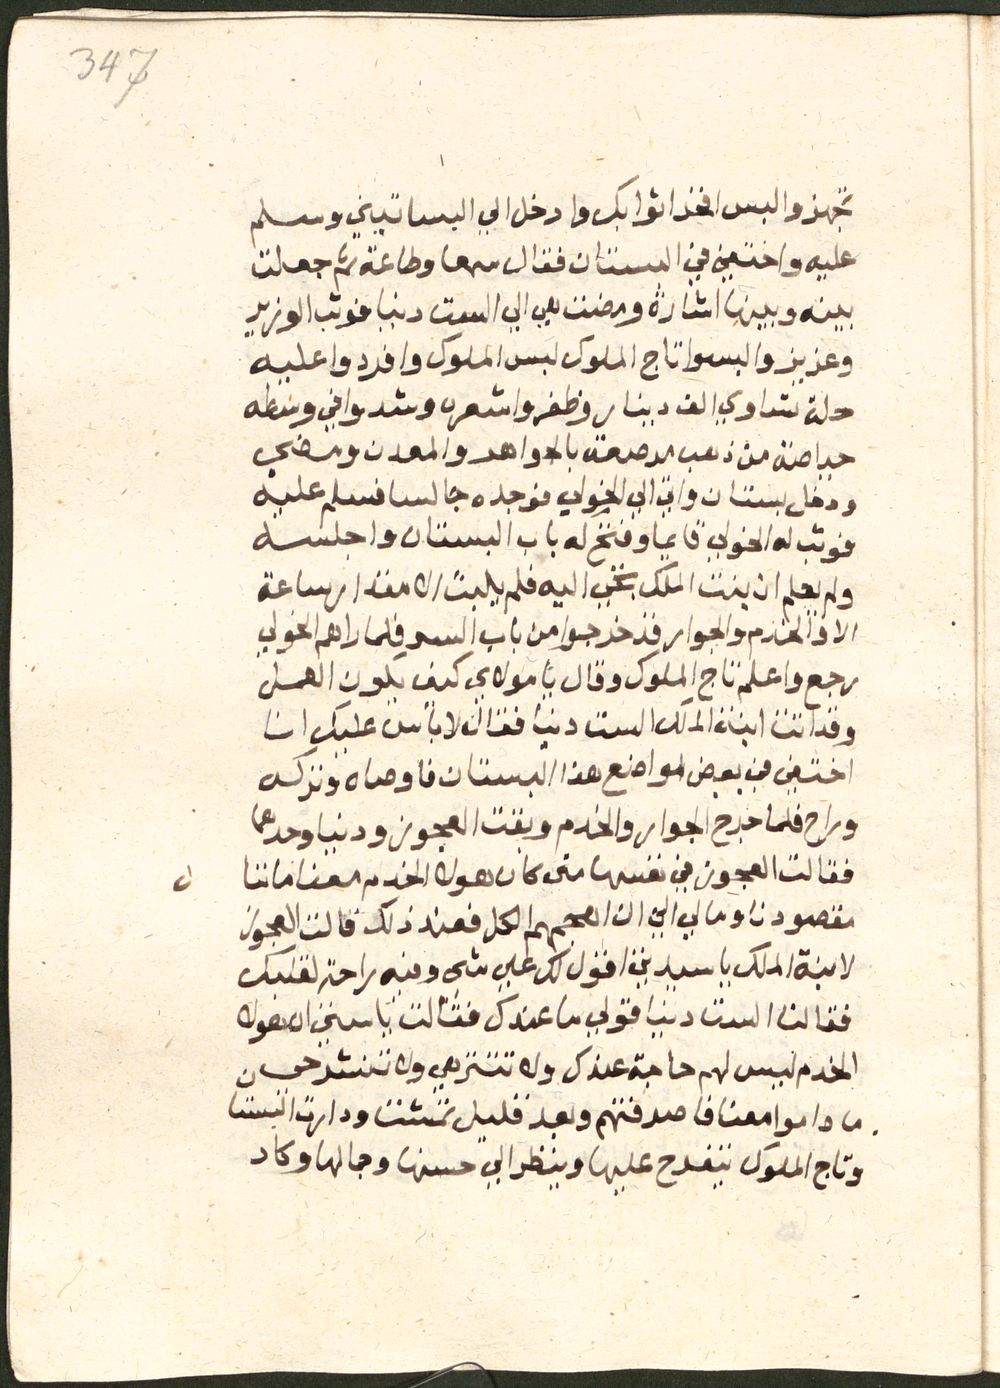 347
تجهز والبس افخر اثوابك وادخل الي البساتيني وسلم
عليه واختفي في البستان فقال سمعا وطاعة ثم جعلت
بينه وبينها اشارة ومضت هي الي الست دنيا فوثب الوزير
وعزيز والبسوا تاج الملوك لبس الملوك وافردوا عليه
حلة تساوي الف دينار وظفروا شعره وشدوا في وسطه
حياصة من ذهب مرصعة بالجواهر والمعدن ومضي
ودخل بستان واتي الي الخولي فوجده جالسا فسلم عليه
فوثب له الخولي قايما وفتح له باب البستان واجلسه
ولم يعلم ان بنت الملك تجي اليه فلم يلبث الا مقدار ساعة
الا والخدم والجوار قد خرجوا من باب السر فلما راهم الخولي
رجع واعلم تاج الملوك وقال يا مولاي كيف يكون العمل
وقد اتت ابنة الملك الست دنيا فقال لا باس عليك انا
اختفي في بعض مواضع هذا البستان فاوصاه وتركه
وراح فلما خرج الجوار والخدم وبقت العجوز ودنيا وحدهما
فقالت العجوز في نفسها متي كان هولاء الخدم معنا ما نلنا
مقصودنا وما لي الي ان الهم الكل فعند ذلك قالت العجوز
لابنة الملك يا سيدتي اقول لك علي شي وفيه راحة لقلبك
فقالت الست دنيا قولي ما عندك فقالت يا ستي ان هولاء
الخدم ليس لهم حاجة عندك ولا تتنزهي ولا تنشرحي
ما داموا معنا فاصرفتهم وبعد قليل تمشت ودارت البستان
وتاج الملوك يتفرج عليها وينظر الي حسنها وجمالها وكاد